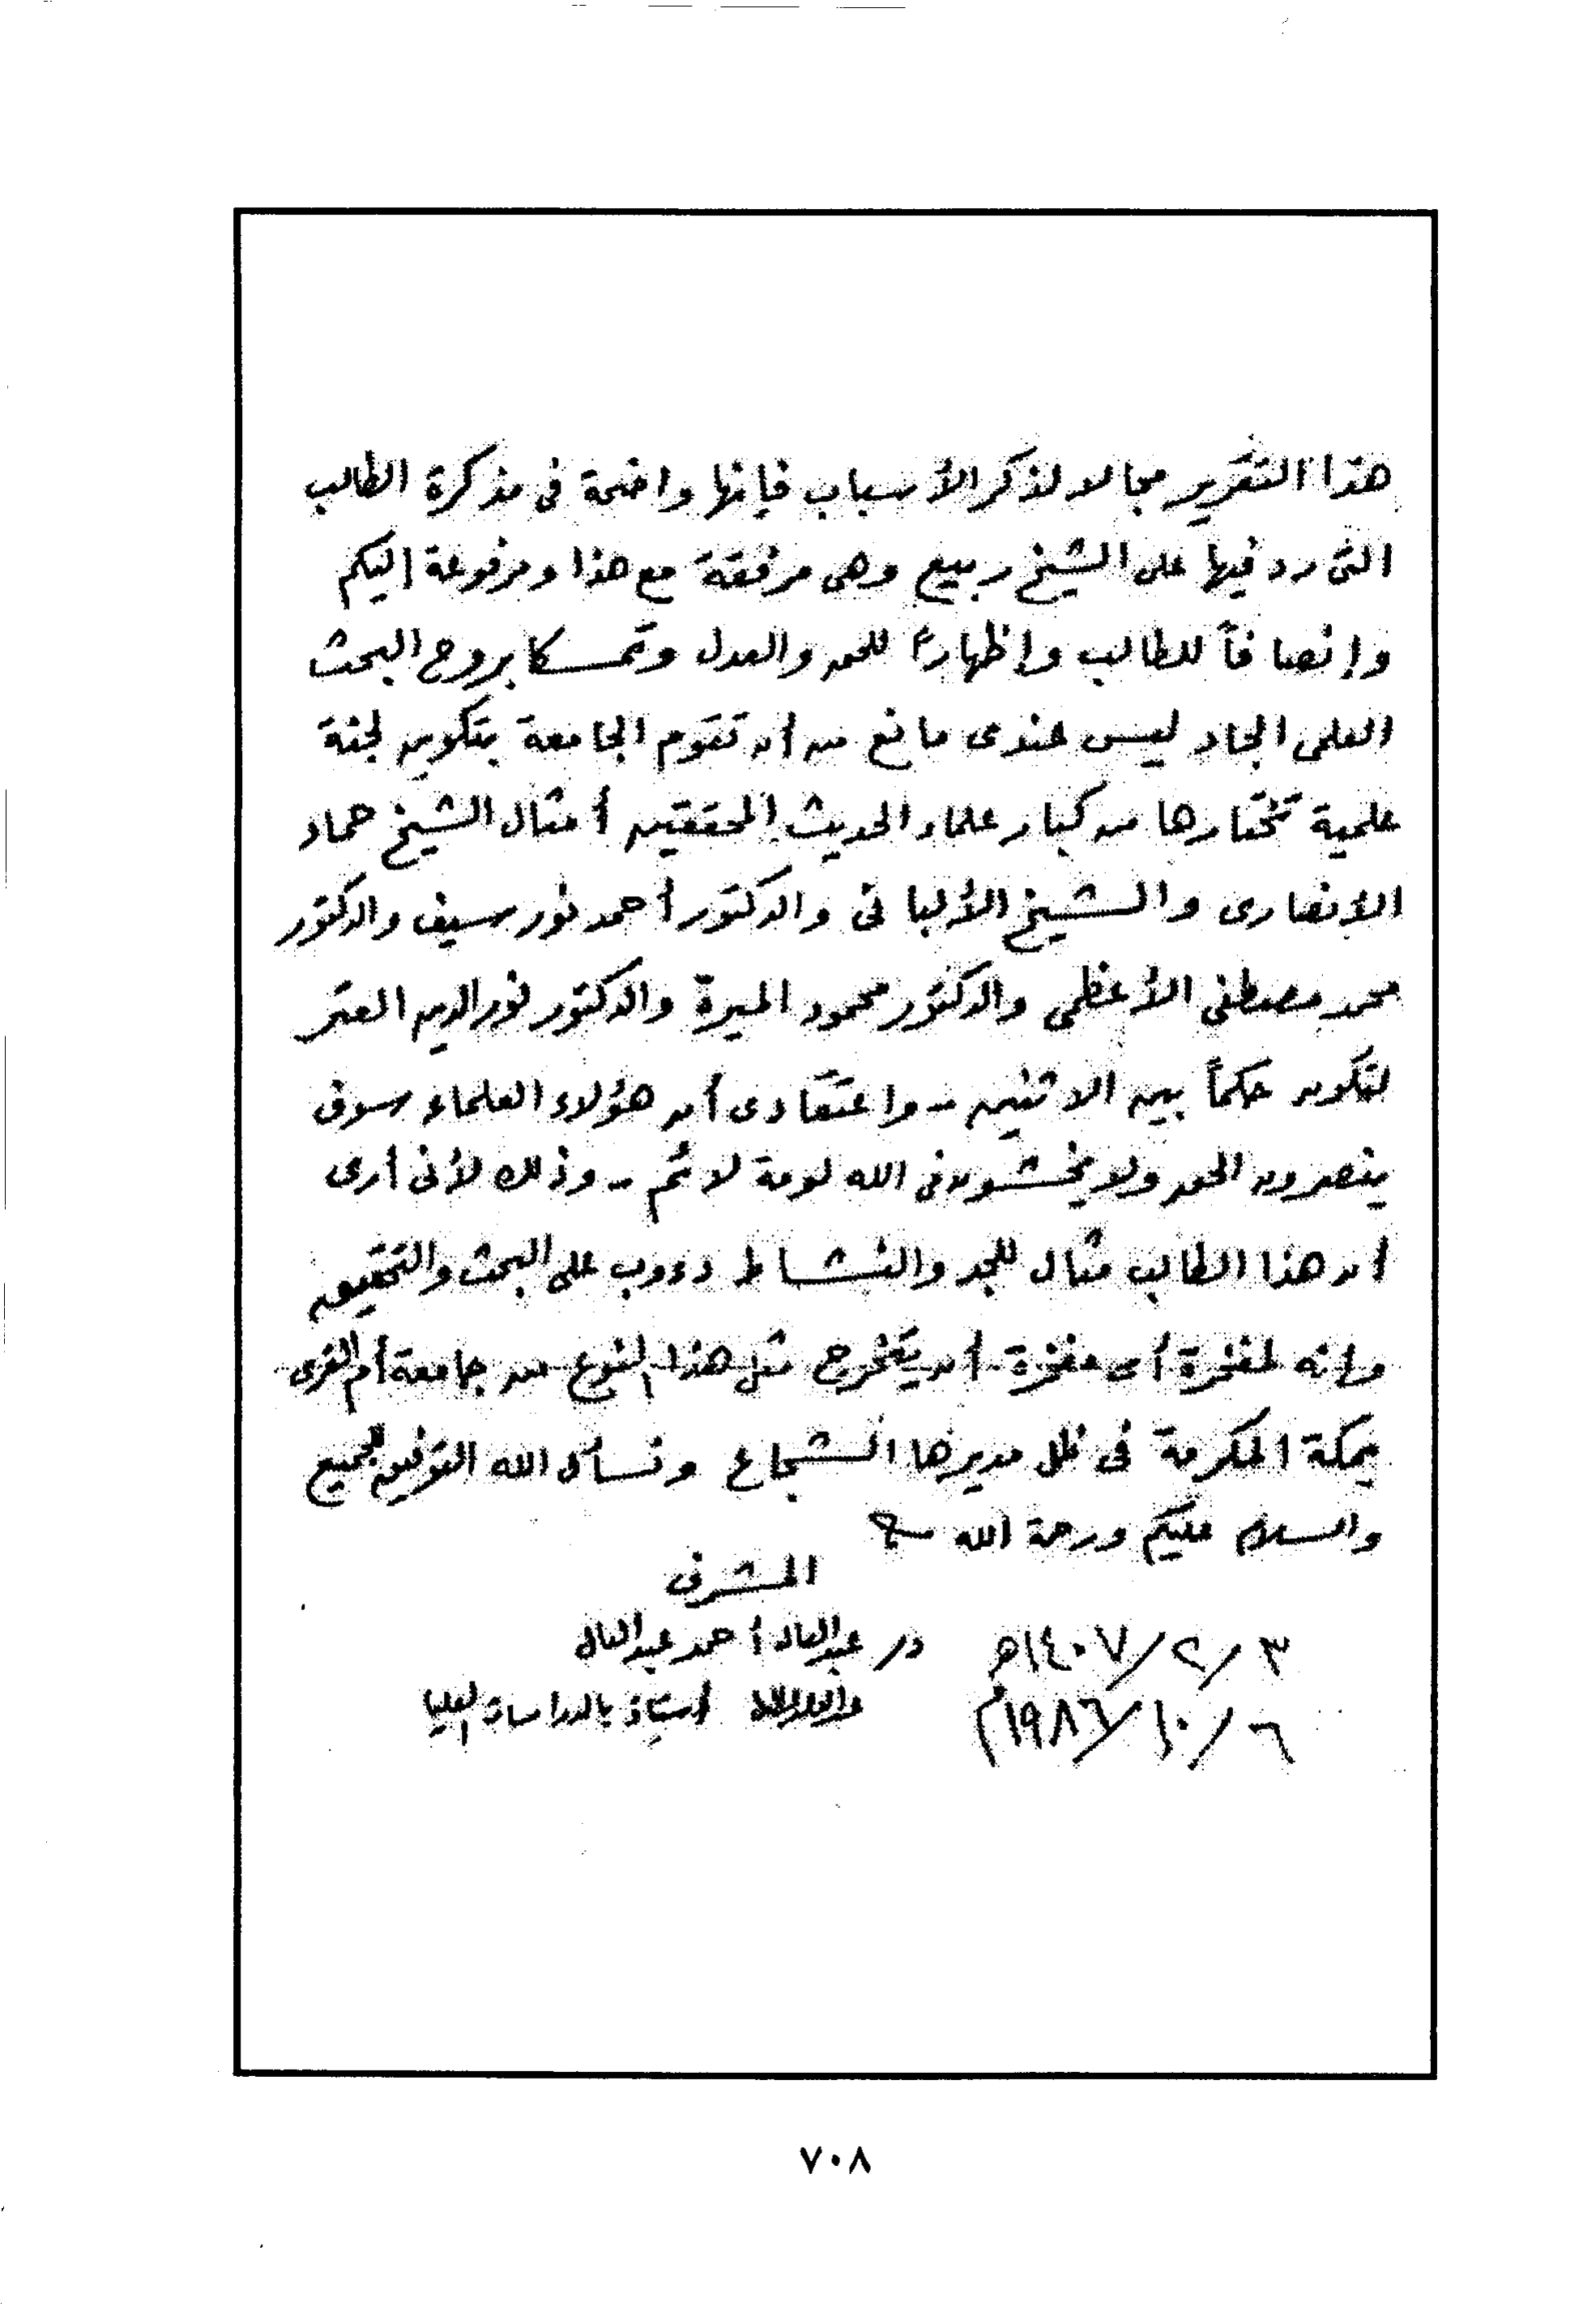 هذا التقرير مجالا لذكر الأسباب فإنها واضحة فى مذكرة الطالب
التى رد فيها على الشيخ ربيع وهى مرفقة مع هذا ومرفوعة إليكم
وإنصافاً للطالب وإظهاراً للحق والعدل وتمسكا بروح البحث
العلمى الجاد ليس عندى مانع من أن تقوم الجامعة بتكوين لجنة
علمية تختارها من كبار علماء الحديث المحققين أمثال الشيخ حماد
الأنصارى والشيخ الألبانى والدكتور أحمد نور سيف والدكتور
محمد مصطفى الأعظمى والدكتور محمود الميرة والدكتور نور الدين العتر
لتكون حكماً بين الاثنين -- واعتقادى أن هؤلاء العلماء سوف
ينصرون الحق ولا يخشون فى الله لومة لائم -- وذلك لأنى أرى
أن هذا الطالب مثال للجد والنشاط دءوب على البحث والتحقيق
وإنه لمفخرة أى مفخرة أن يتخرج مثل هذا النوع من جامعة أم القرى
بمكة المكرمة فى ظل مديرها الشجاع ونسأل الله التوفيق للجميع
والسلام عليكم ورحمة الله
المشرف
٣/٢/١٤٠٧هـ د/ عبدالعال أحمد عبدالعال
٦/١٠/١٩٨٦م أستاذ بالدراسات العليا
٧٠٨